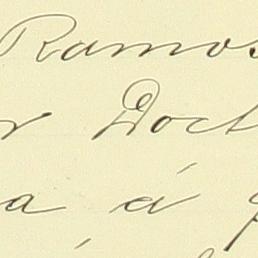 Ramos
r Doct
a á